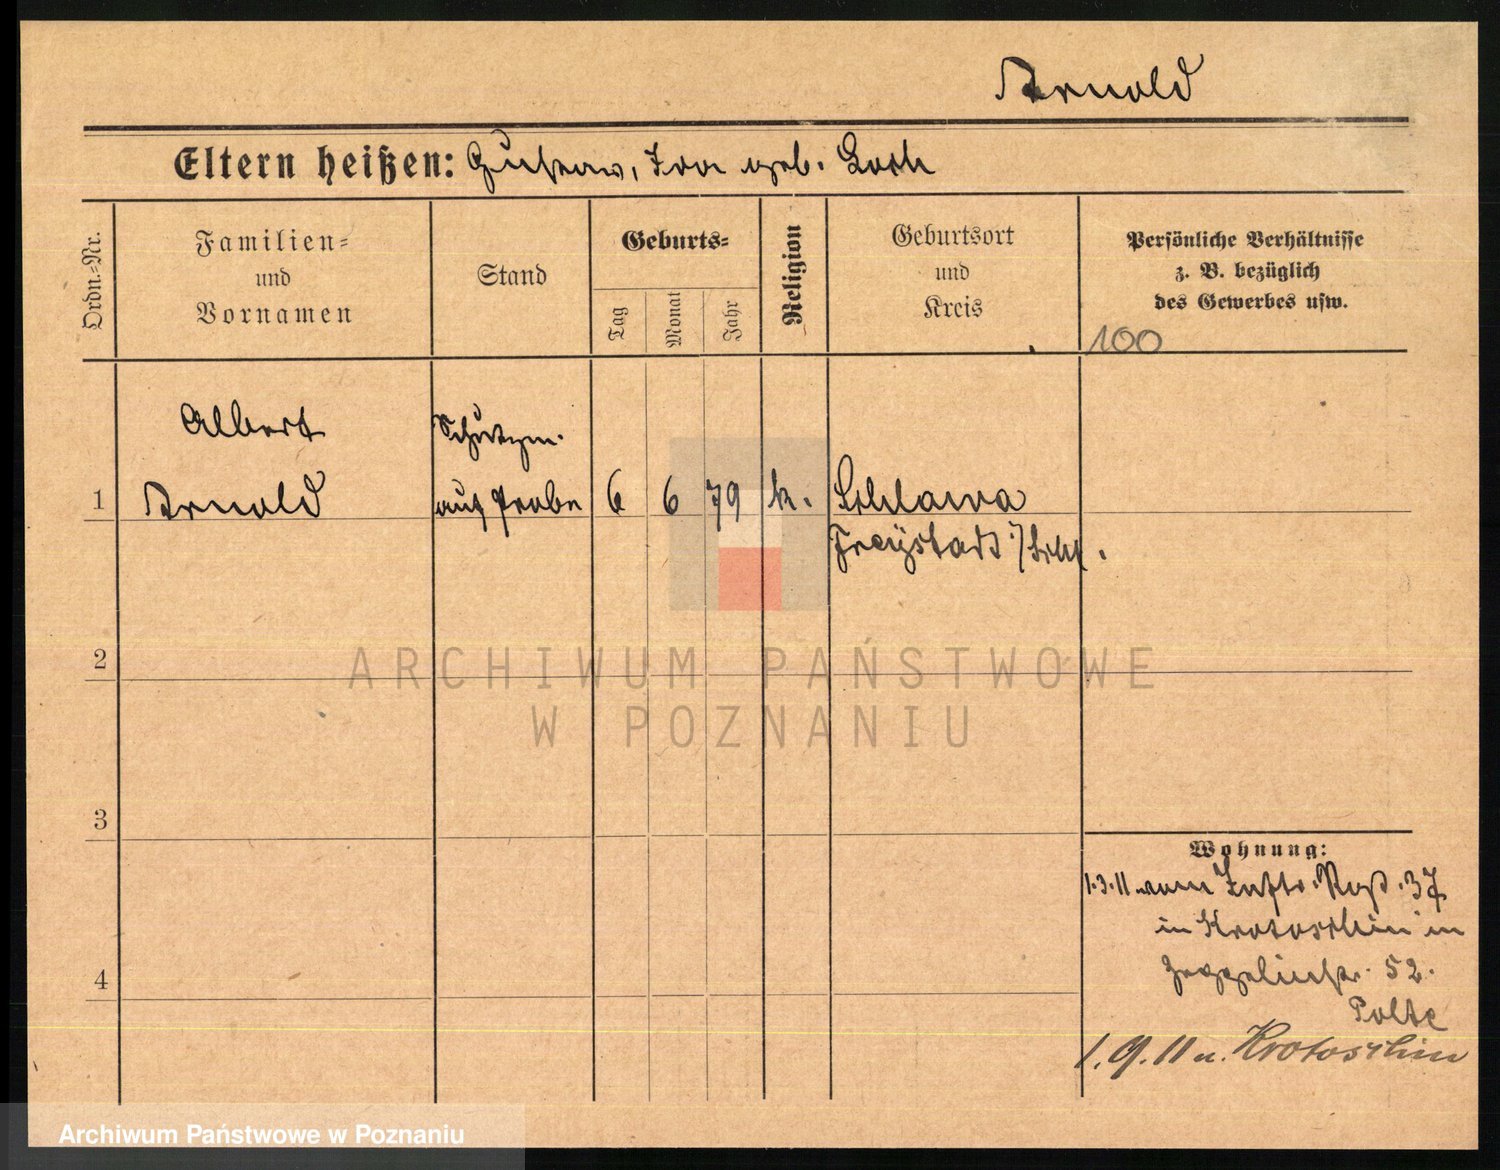 Arnold
Eltern heißen: Gustav, Ida geb. Loch
Ordn.-Nr.
Familien-
und
Vornamen
Stand
Geburts-
Tag
Monat
Jahr
Religion
Geburtsort
und
Kreis
Persönliche Verhältnisse
z. B. bezüglich
des Gewerbes usw.
100
Albert
Arnold
Schutzm.
auf Probe
1
6
6
79
k.
Schlawa
Freystadt i/Schl.
2
3
4
Wohnung:
1.3.11 vom Inftr. Regt. 37
in Krotoschin in
Zeppelinstr. 52.
Polte
1.9.11 n. Krotoschin
ARCHIWUM PAŃSTWOWE
W POZNANIU
Archiwum Państwowe w Poznaniu